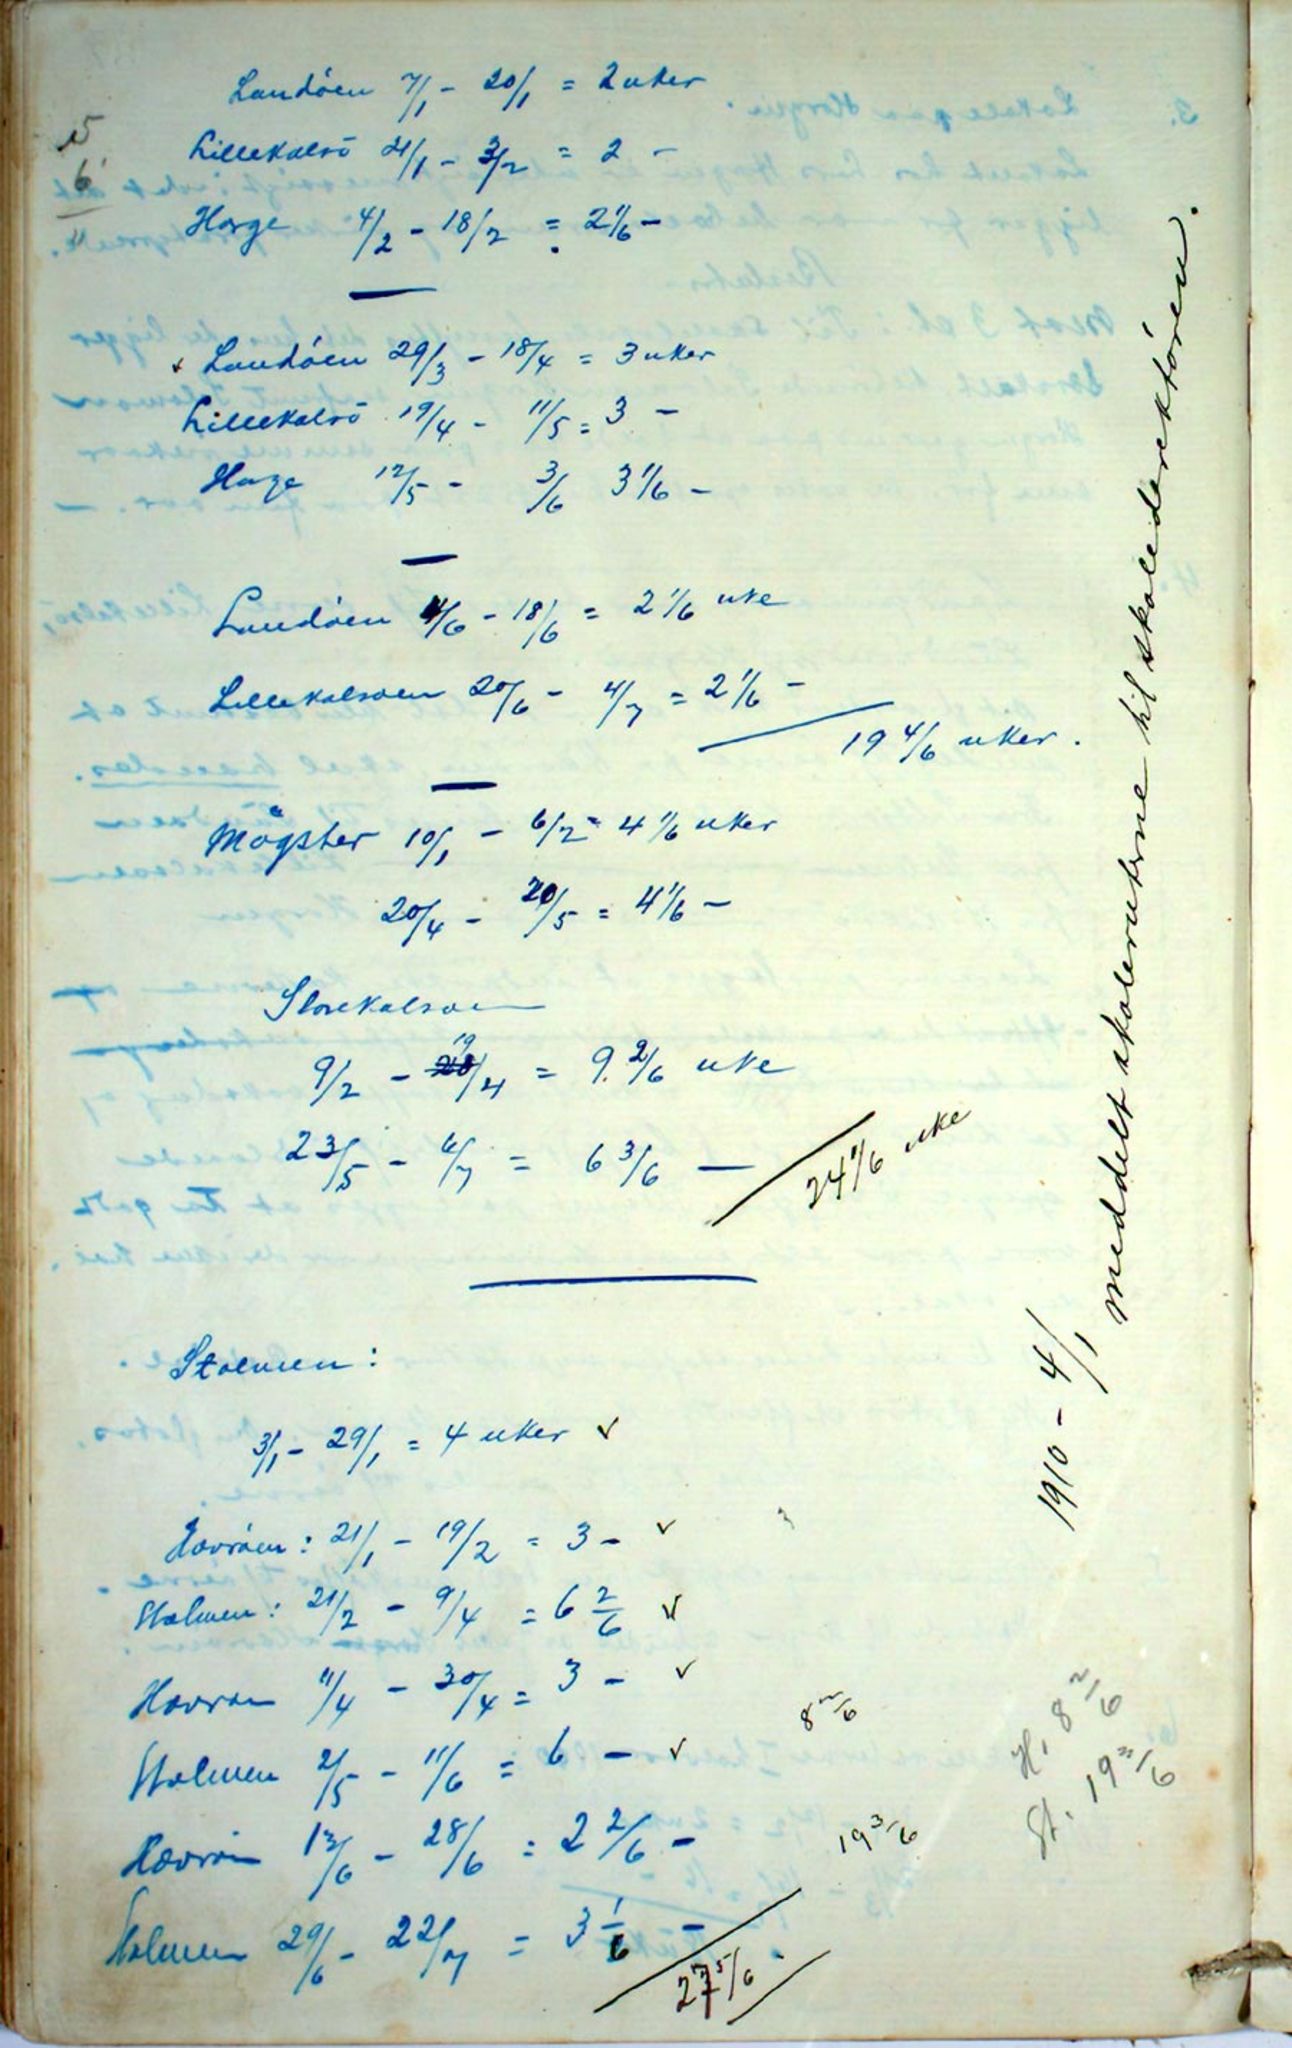 Landöen 7/1 - 20/1 = 2 uker
15
6
11
Lillekalsö 21/1 - 3/2 = 2 -
Horge 4/2 - 18/2 = 2 1/6 -
Landöen 29/3 - 18/4 = 3 uker
Lillekalsö 19/4 - 11/5 = 3 -
Horge 12/5 - 3/6 3 1/6 -
Landöen 4/6 - 18/6 = 2 1/6 uke
Lillekalsoen 20/6 - 4/7 = 2 1/6 -
19 4/6 uker.
Mögster 10/1 - 6/2 = 4 1/6 uker
20/4 - 20/5 = 4 1/6 -
Storekalsoen
9/2 - 19/4 = 9 2/6 uke
23/5 - 6/7 = 6 3/6 -
24 1/6 uke
Stolmen:
3/1 - 29/1 = 4 uker ✓
Hovröen: 21/1 - 19/2 = 3 - ✓
Stolmen: 21/2 - 9/4 = 6 2/6 ✓
Hovröen 11/4 - 30/4 = 3 - ✓
8 2/6
Stolmen 2/5 - 11/6 = 6 - ✓
Hovröen 13/6 - 28/6 = 2 2/6 -
19 3/6
Stolmen 29/6 - 22/7 = 3 1/6 -
27 5/6
H. 8 2/6
St. 19 3/6
1910 - 4/1 meddelt skoleruterne til skoledirektören.